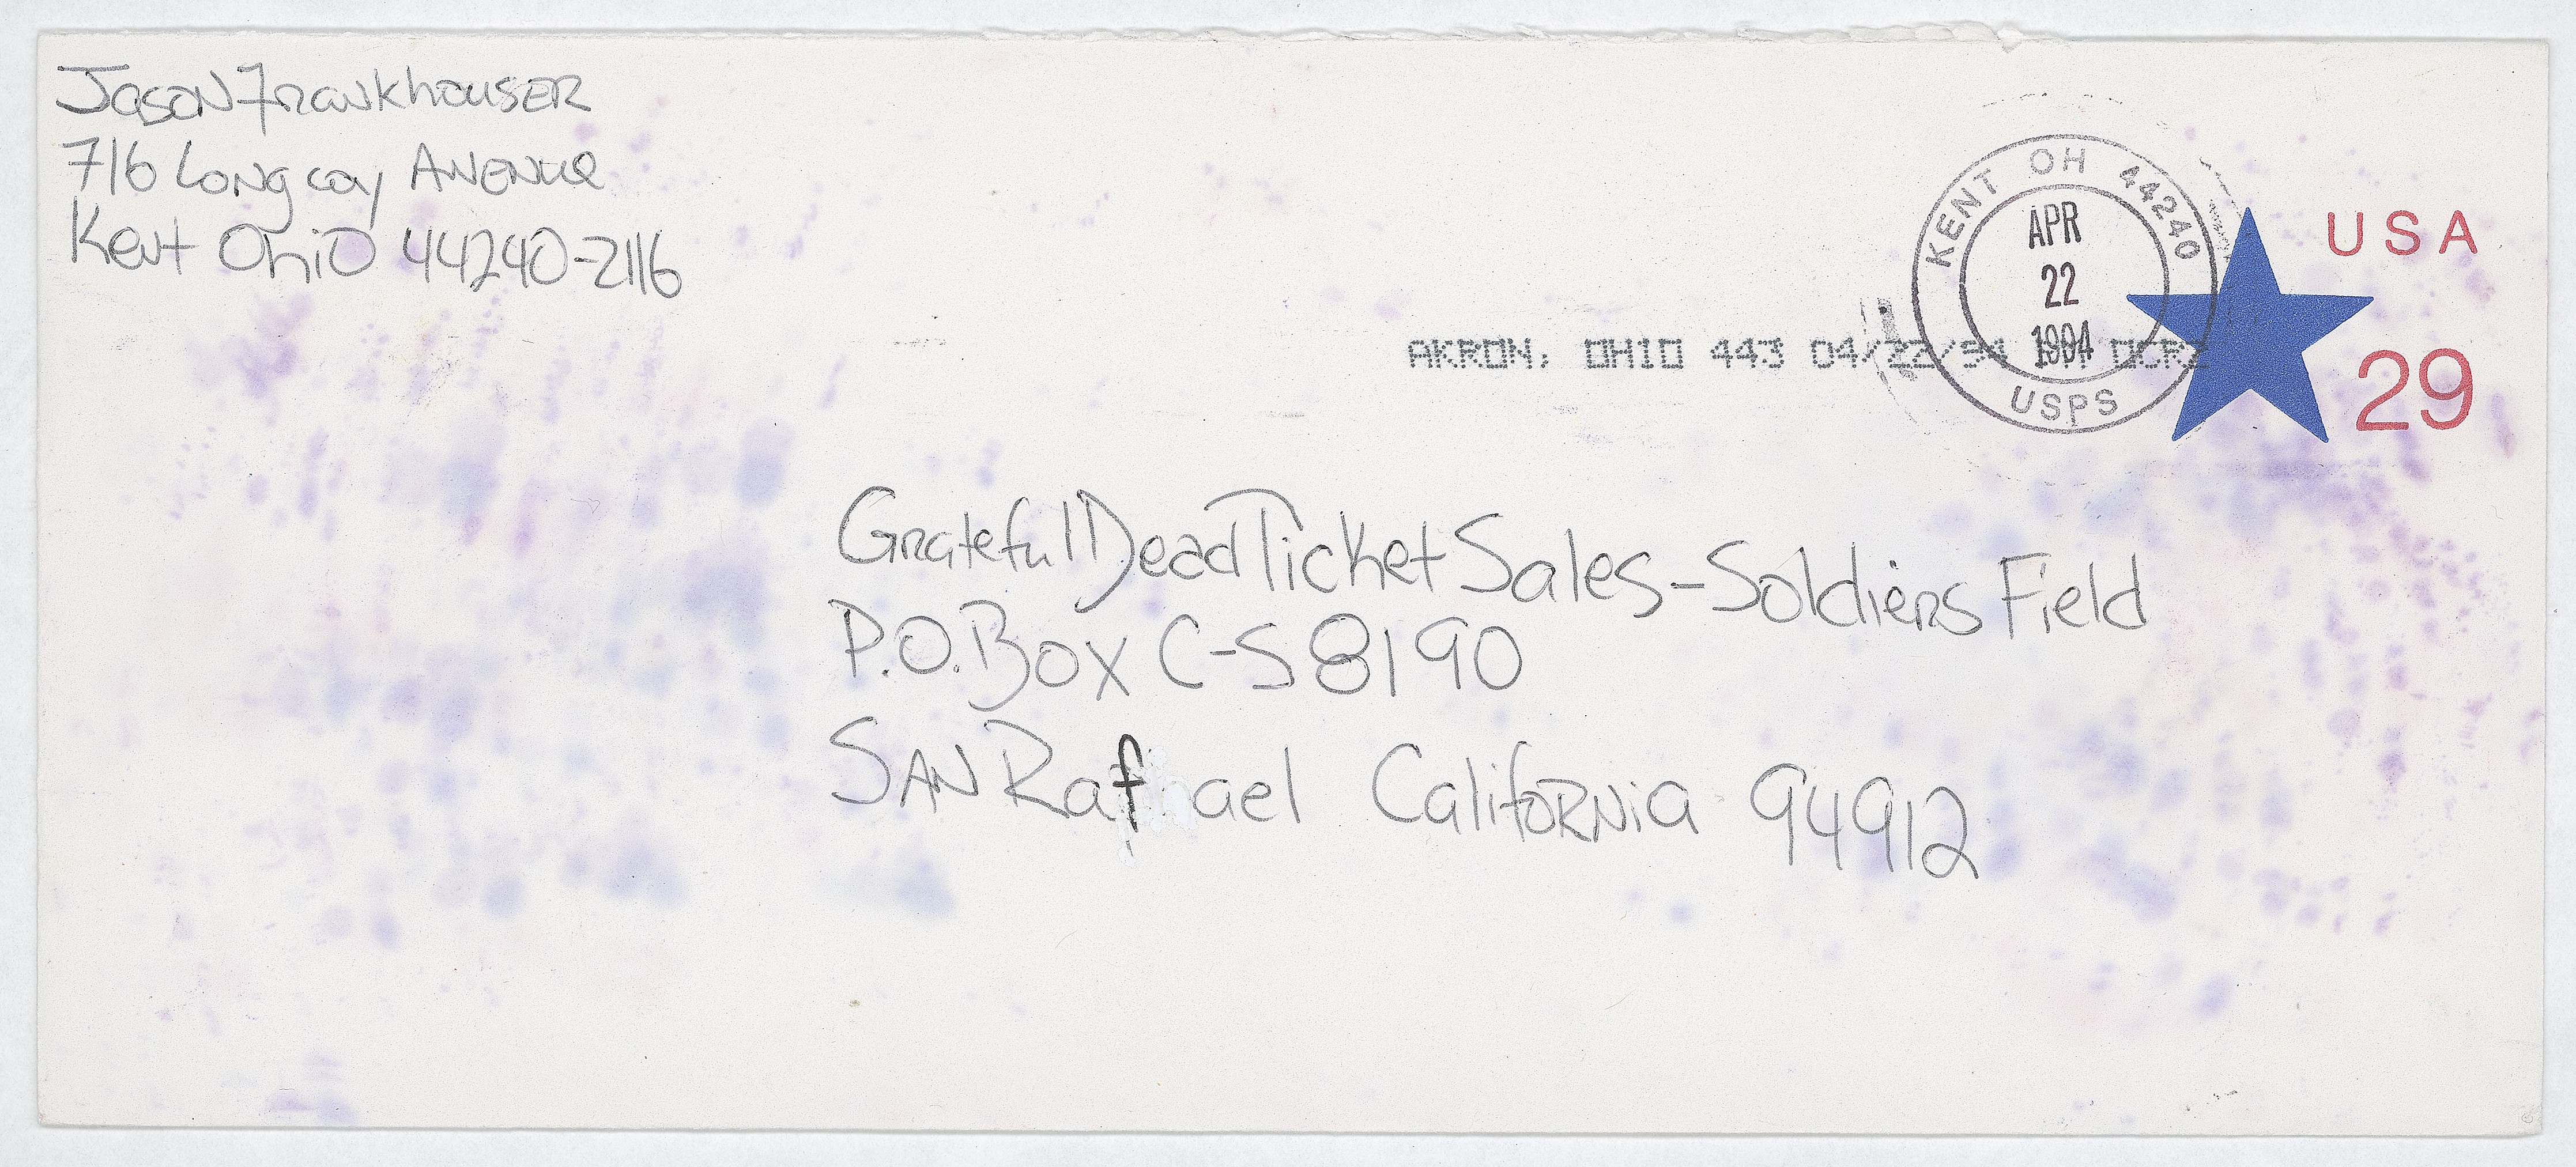 Jason Frankhouser
716 Longcoy Avenue
Kent Ohio 44240-2116
KENT OH 44240
APR
22
1994
USPS
USA
29
AKRON, OHIO 443 04/22/94
Grateful Dead Ticket Sales-Soldiers Field
P.O. Box C-S 8190
San Rafael California 94912